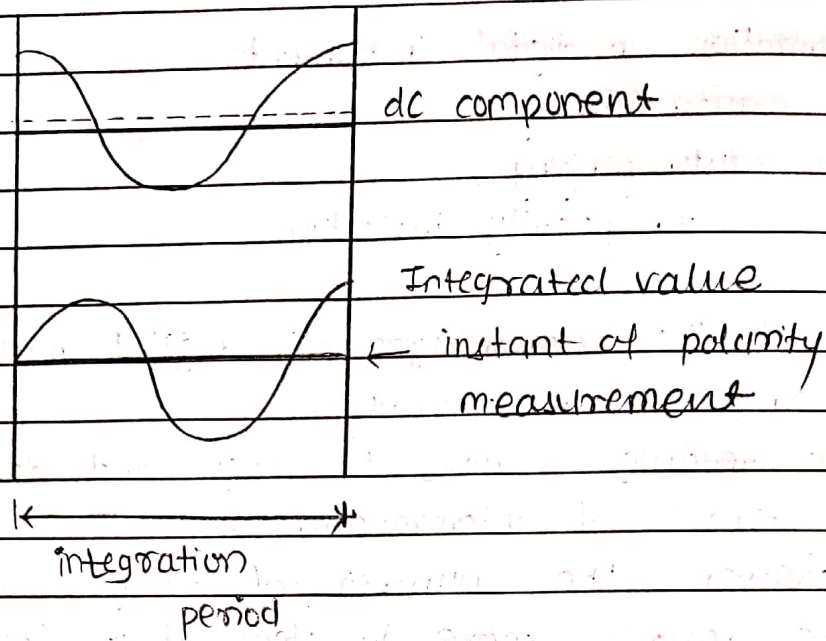 dc component
Integrated value
instant of polarity
measurement
integration
period